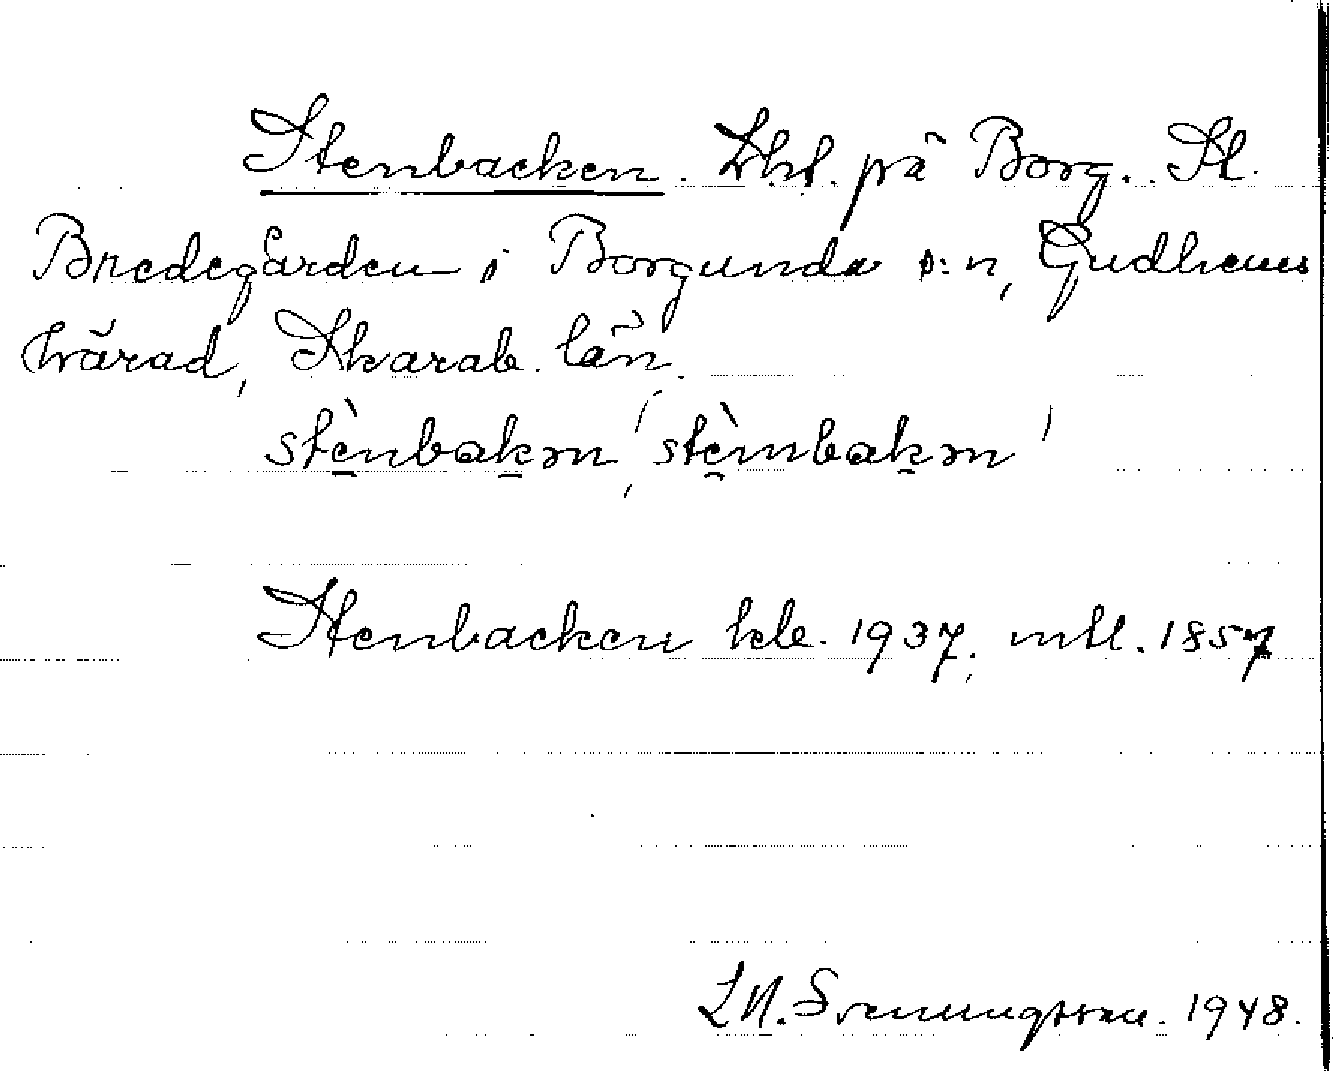 Stenbacken. Lht. på Borg. St.
Bredegården i Borgunda s:n, Gudhems
härad, Skarab. län.
stènbakən, stèmbakən
Stenbacken hbl. 1937, mtl. 1857
L.N. Svenungsson. 1948.